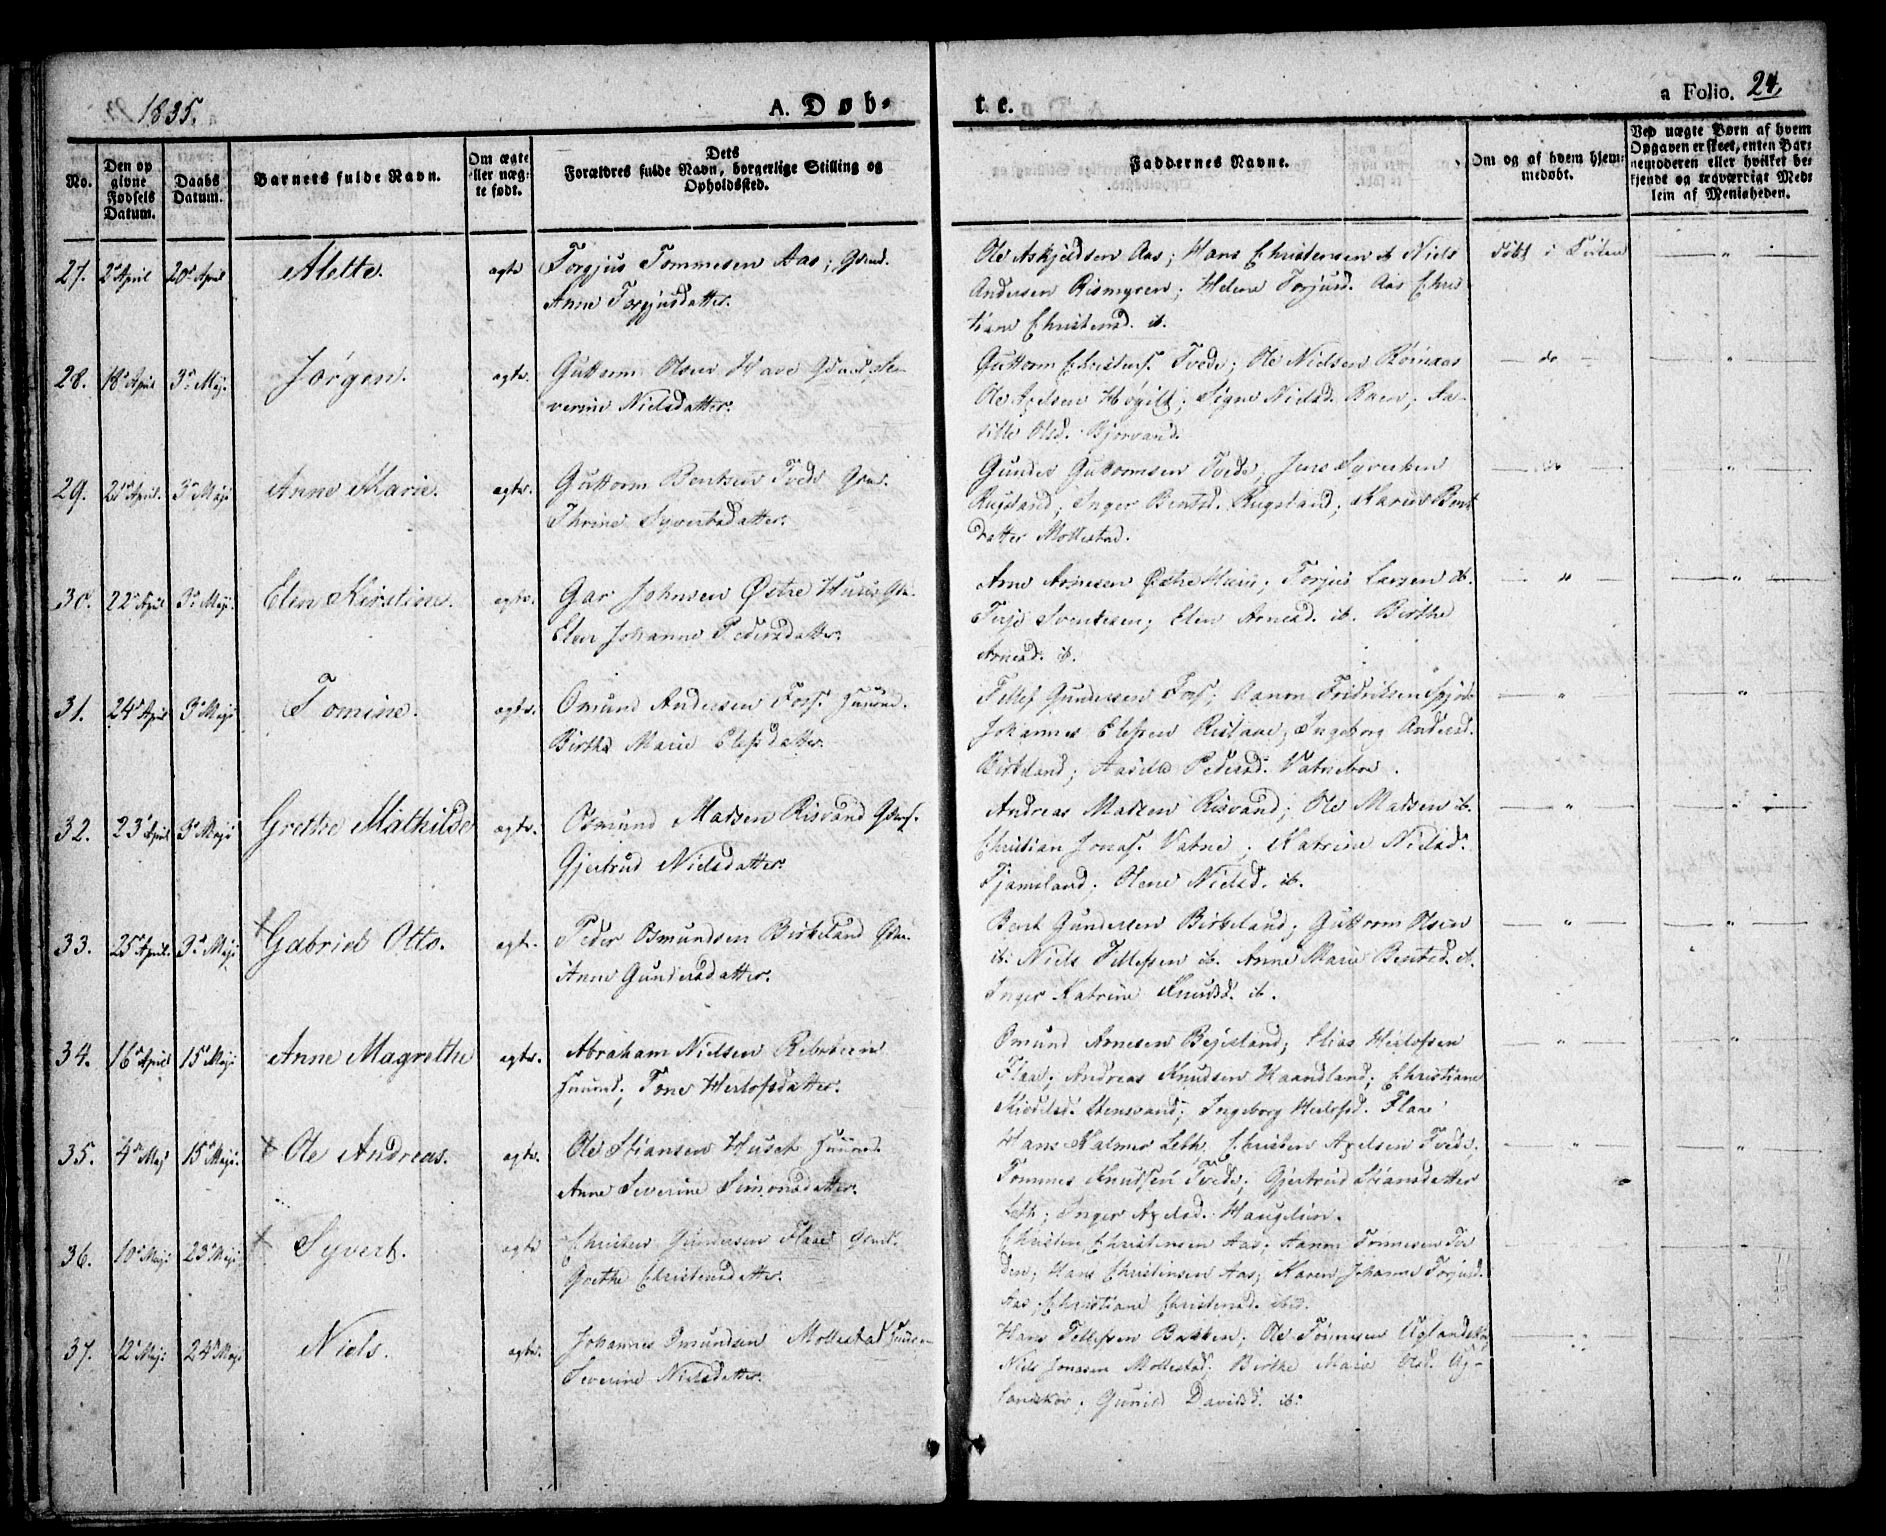 1835.
A. Døb-
te.
a Folio. 24.
No.
Den op
givne
Fødsels
Datum.
Daabs
Datum.
Barnets fulde Navn.
Om ægte
eller uæg-
te født.
Dets
Forældres fulde Navn, borgerlige Stilling og
Opholdssted.
Faddernes Navne.
Om og af hvem hjem-
medøbt.
Ved uægte Børn af hvem
Opgaven er skeet, enten Bar-
nemoderen eller hvilket be-
kjendt og troværdigt Med-
lem af Menigheden.
27. 2d April 20d April Alette. ægte Torgjus Tommesen Aas; Gbmd.
Anne Torgjusdatter.
Ole Askjeldsen Aas; Hans Christensen ib Niels
Andersen Rismyren; Helene Torjusd. Aas Chris
tiane Christensd. ib.
døbt i Kirken
28. 18d April 3d May. Jørgen. ægte. Guttorm Olsen Have Gbmd Se-
verine Nielsdatter.
Guttorm Christens. Tvede; Ole Nielsen
Ole Axelsen Høgilt; Signe Nielsd. Roen;
Olsd. Bjorvand.
do
29. 21d April. 3d May Anne Marie. ægte. Guttorm Bentsen Tvede Gbmd.
Thrine Syvertsdatter.
Gunder Guttormsen Tvede; Jens Syvertsen
Rugsland; Inger Bentsd. Rugsland; Karen Bent
datter Mollestad.
30. 22d April 3d May. Elen Kirstine. ægte. Gar Johnsen Østre Huus Gbm.
Elen Johanne Pedersdatter.
Arne Arnesen Østre Huus; Torjus Larsen ib.
Terje Svenksen; Elen Arnesd. ib. Birthe
Arnesd. ib.
31. 24d April 3d May Tomine. ægte. Omund Andersen Foss. Huusmd.
Birthe Marie Elefsdatter.
Tellef Gundersen Foss; Aanon Fridriksen
Johannes Elefsen Rislaae; Ingeborg Andersd.
Birkeland; Aasille Pedersd. Vatnebroe.
32. 23d April 3d May Grethe Mathilde ægte. Osmund Madsen Risvand Gbms.
Gjertrud Nielsdatter.
Andreas Madsen Risvand; Ole Madsen ib.
Christian Jonas. Vatne; Katrine Nielsd.
Tjomsland. Olene Nielsd. ib.
33. 25d April. 3d May Gabriel Otto. ægt. Peder Osmundsen Birkeland Gbm.
Anne Gundersdatter.
Bent Gundersen Birkeland; Guttorm Olsen
ib. Niels Tellefsen ib. Anne Marie Bentsd. ib.
Inger Katrine Knudsd. ib.
34. 16d April 15d May Anne Magrethe ægte. Abraham Nielsen
Huusmd; Tone Herlofsdatter.
Omund Arnesen Bejsland; Elias Herlofsen
Flaae; Andreas Knudsen Haandland; Christiane
Stensvand; Ingeborg Herlofsd. Flaae
35. 4d May 15d May. Ole Andreas. ægte. Ole Stiansen Huset Huusmd.
Anne Severine Simonsdatter.
Hans Kalmer Leth, Christen Axelsen Tvede;
Tommes Knudsen Tvede; Gjertrud Stiansdatter
Leth; Inger Axelsd. Haugelien.
36. 10d May 23d May Syvert. ægte Christen Gundersen Flaae Gbmd.
Grethe Christensdatter.
Christen Christensen Aas; Aanon Tommesen Tve
den; Hans Christensen Aas; Karen Johanne Torjusd.
Aas. Christiane Christensd. ibid.
37. 12d May 24d May Niels. ægte. Johannes Omundsen Mollestad Huusm
Severine Nielsdatter.
Hans Tellefsen Bakken; Ole Tommesen Uglandskov
Niels Jonasen Mollestad; Birthe Marie Olsd. Ug-
landskov; Gunild Davidsd. ib.